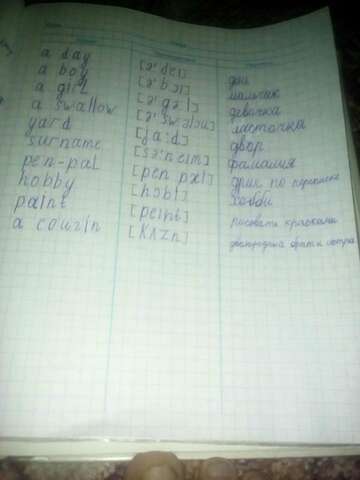 a day [ə'deɪ] дни
a boy [ə'bɔɪ] мальчик
a girl [ə'gəl] девочка
a swallow [ə'swɔləu] ласточка
yard [ja:d] двор
surname [sə:neɪm] фамилия
pen-pal [pen pæl] друг по переписке
hobby [hɔbɪ] хобби
paint [peɪnt] рисовать красками
a couzin [kʌzn] двоюродный брат и сестра